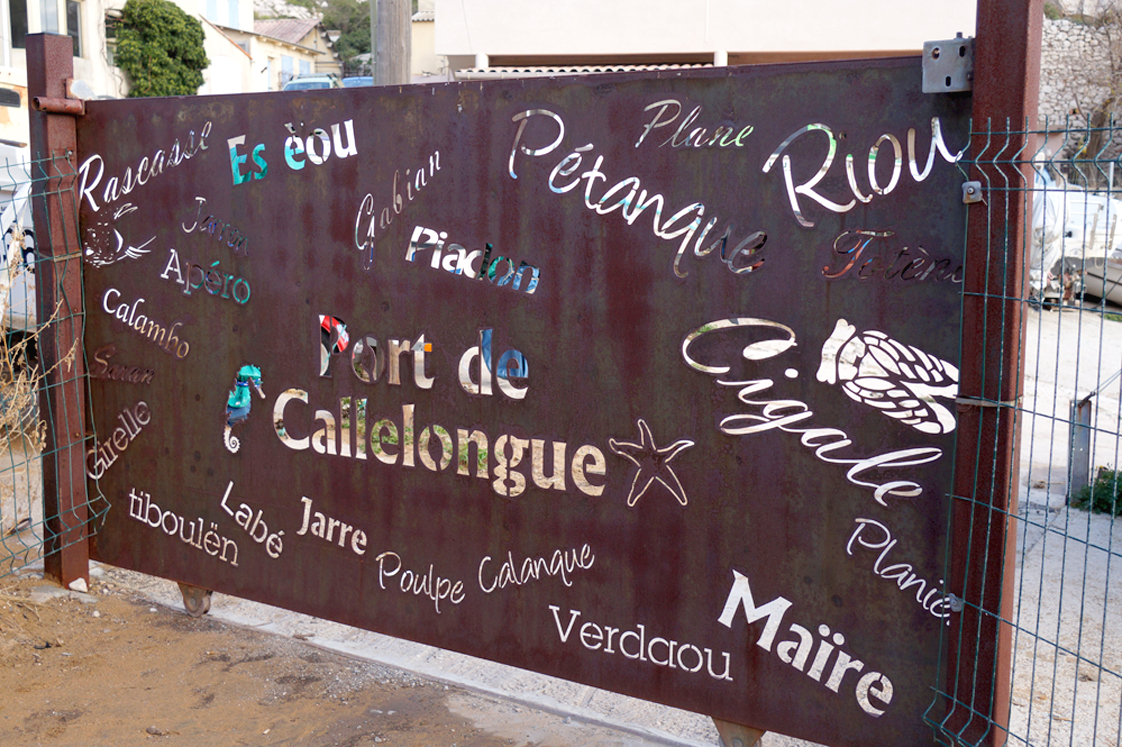 Rascasse
Es ëou
Gabian
Pétanque
Plane
Riou
Jarron
Apéro
Piadon
Totène
Calambo
Saran
Port de
Callelongue
Cigale
Girelle
tiboulën
Labé
Jarre
Poulpe
Calanque
Verdaou
Maïre
Planier